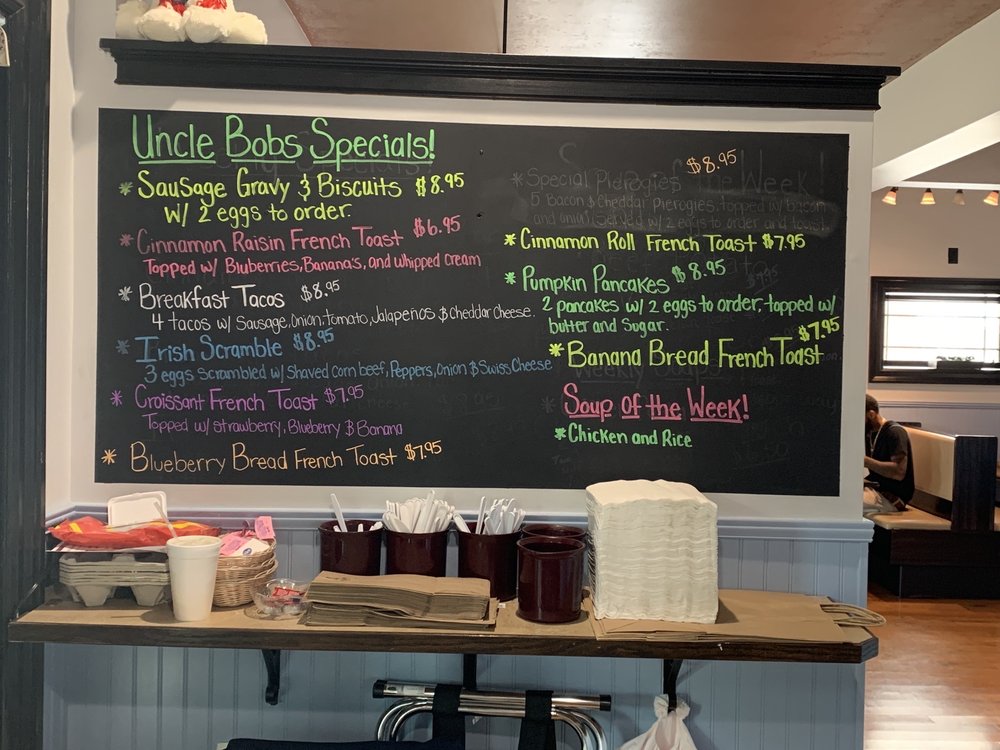 Uncle Bobs Specials!
* Sausage Gravy & Biscuits $8.95
w/ 2 eggs to order.
* Cinnamon Raisin French Toast $6.95
Topped w/ Bluberries, Banana's, and whipped cream
* Breakfast Tacos $8.95
4 tacos w/ Sausage, Onion, Tomato, Jalapeños & Cheddar Cheese.
* Irish Scramble $8.95
3 eggs Scrambled w/ Shaved corn beef, Peppers, Onion & Swiss Cheese
* Croissant French Toast $7.95
Topped w/ strawberry, Blueberry & Banana
* Blueberry Bread French Toast $7.95
$8.95
* Special Pierogies
5 Bacon & Cheddar Pierogies, topped w/ bacon
and Served w/ 2 eggs to order and toast
* Cinnamon Roll French Toast $7.95
* Pumpkin Pancakes $8.95
2 pancakes w/ 2 eggs to order, topped w/
butter and Sugar.
$7.95
* Banana Bread French Toast
Soup of the Week!
* Chicken and Rice